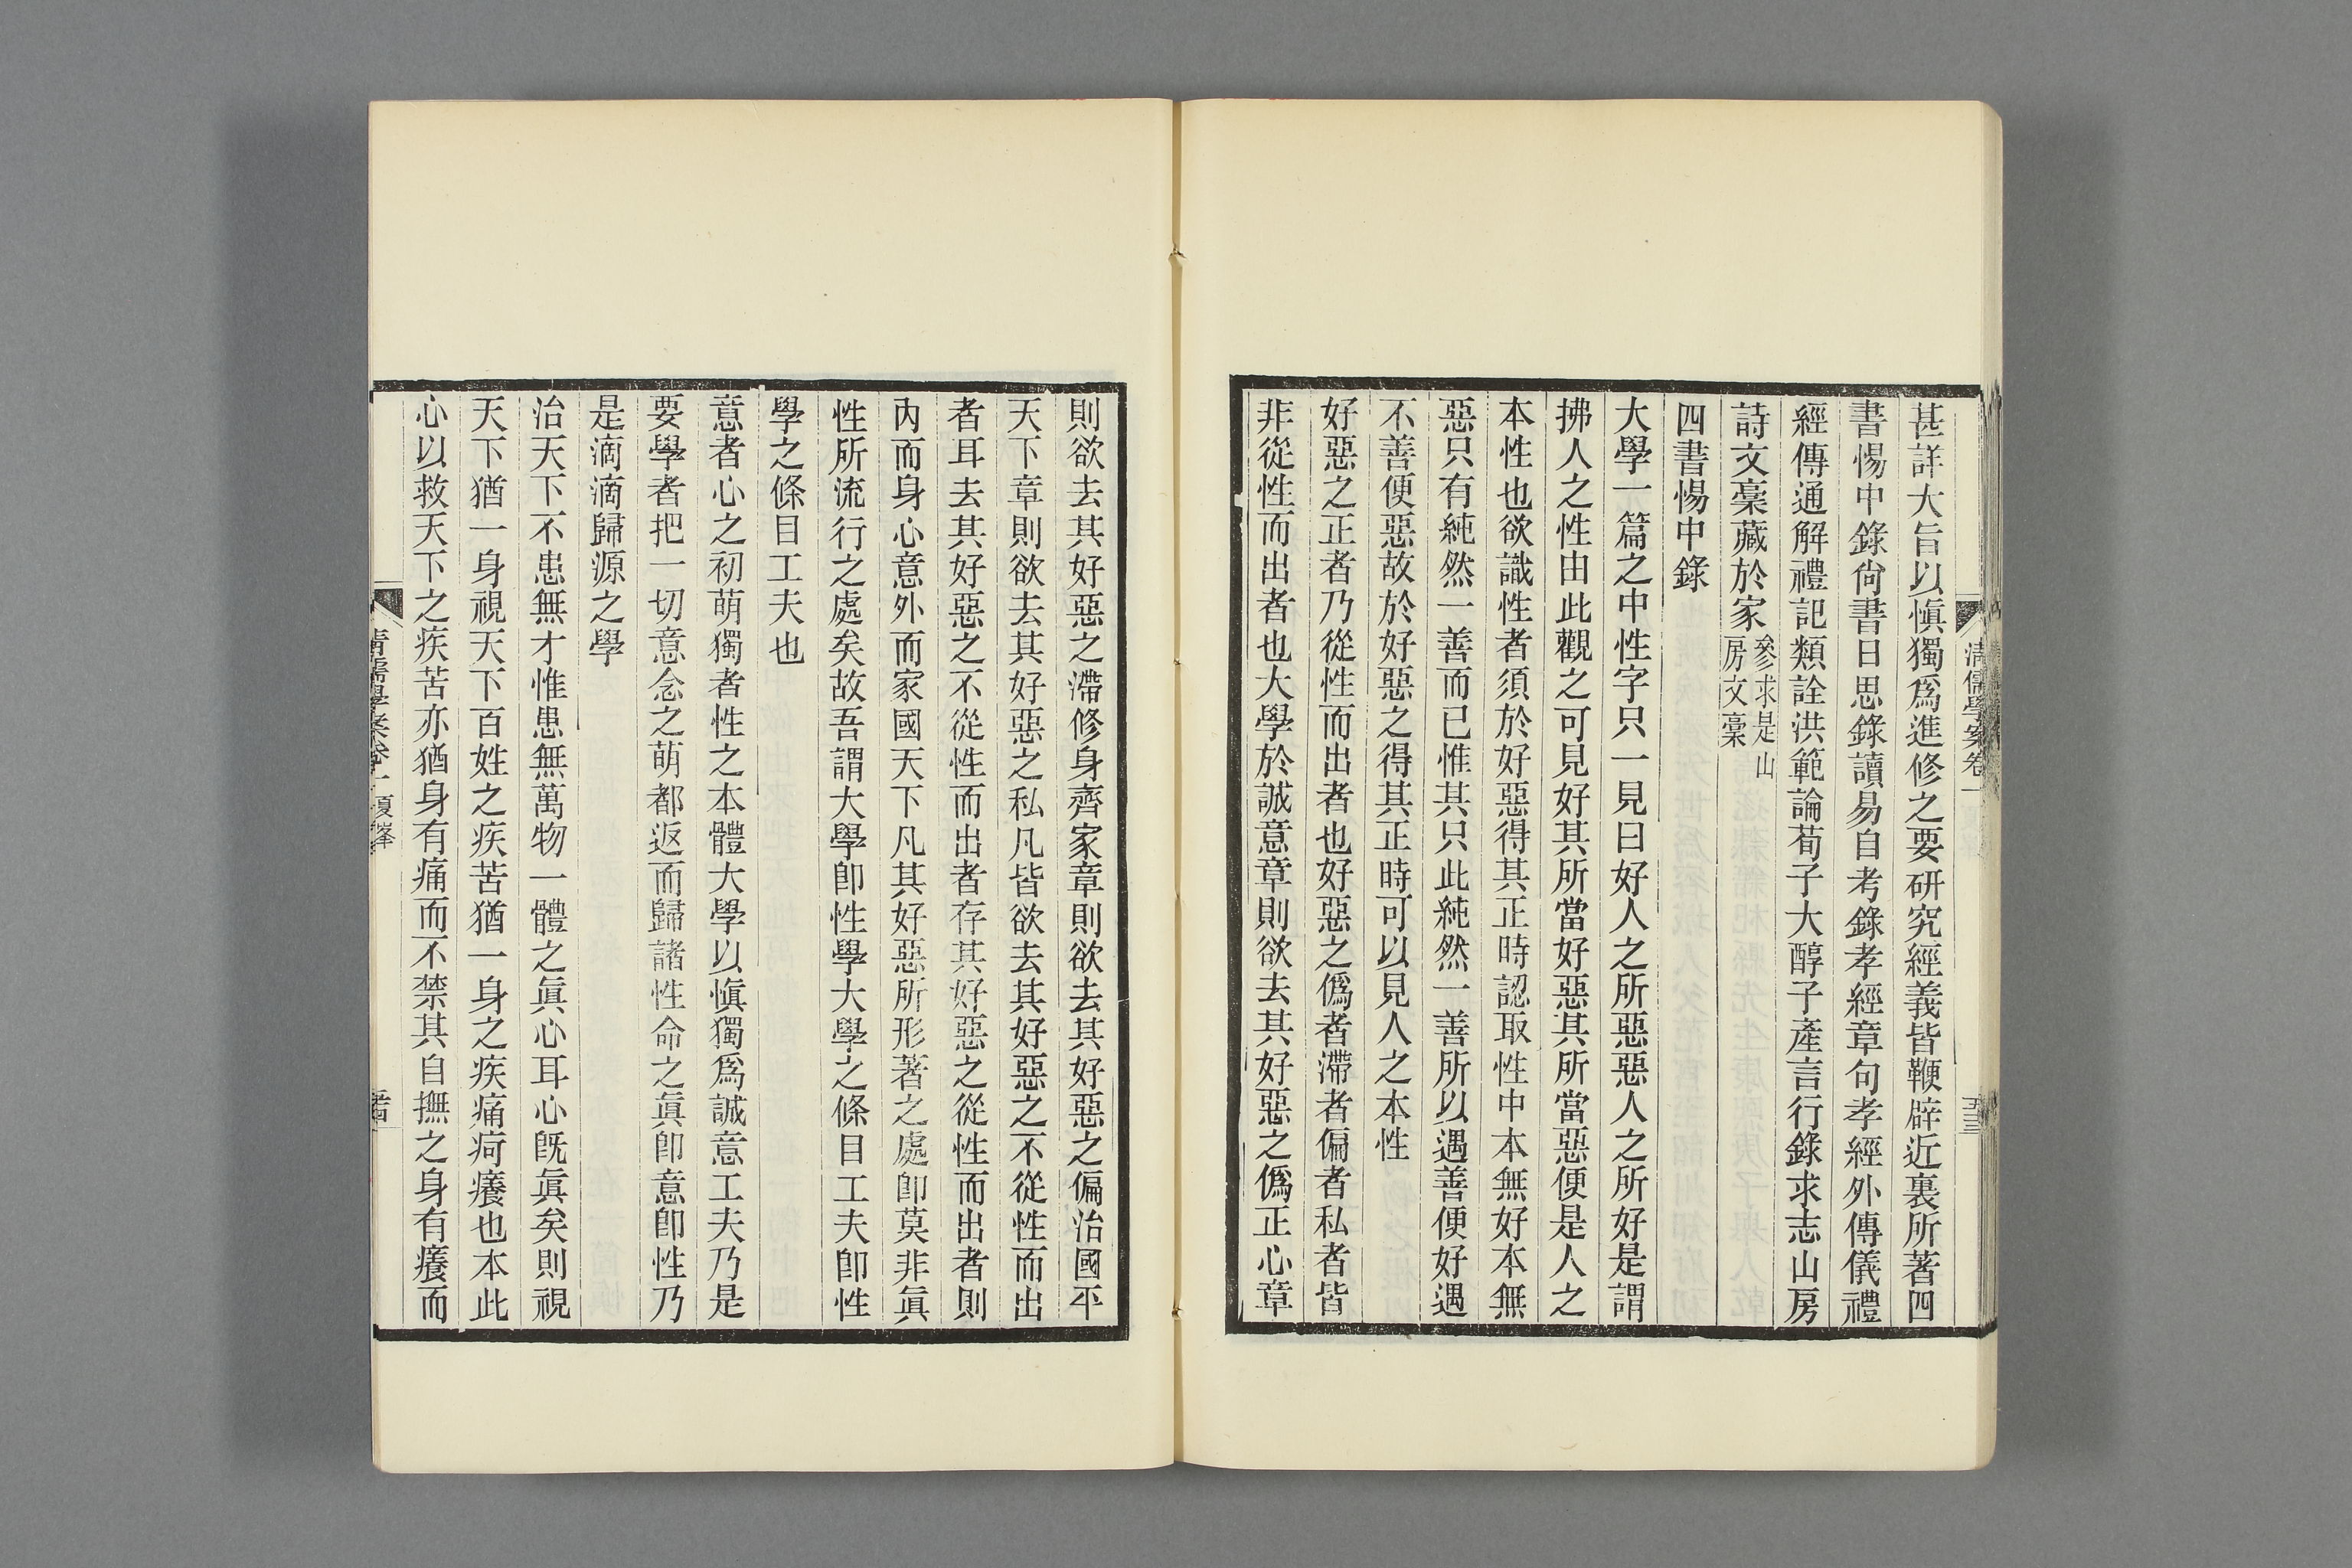 清儒學案卷一
五三
甚詳大旨以愼獨爲進修之要研究經義皆鞭辟近裏所著四
書惕中錄尙書日思錄讀易自考錄孝經章句孝經外傳儀禮
經傳通解禮記類詮洪範論荀子大醇子產言行錄求志山房
詩文稾藏於家
參求是山
房文稾
四書惕中錄
大學一篇之中性字只一見曰好人之所惡惡人之所好是謂
拂人之性由此觀之可見好其所當好惡其所當惡便是人之
本性也欲識性者須於好惡得其正時認取性中本無好本無
惡只有純然一善而已惟其只此純然一善所以遇善便好遇
不善便惡故於好惡之得其正時可以見人之本性
好惡之正者乃從性而出者也好惡之僞者滯者偏者私者皆
非從性而出者也大學於誠意章則欲去其好惡之僞正心章
則欲去其好惡之滯修身齊家章則欲去其好惡之偏治國平
天下章則欲去其好惡之私凡皆欲去其好惡之不從性而出
者耳去其好惡之不從性而出者存其好惡之從性而出者則
內而身心意外而家國天下凡其好惡所形著之處卽莫非眞
性所流行之處矣故吾謂大學卽性學大學之條目工夫卽性
學之條目工夫也
意者心之初萌獨者性之本體大學以愼獨爲誠意工夫乃是
要學者把一切意念之萌都返而歸諸性命之眞卽意卽性乃
是滴滴歸源之學
治天下不患無才惟患無萬物一體之眞心耳心旣眞矣則視
天下猶一身視天下百姓之疾苦猶一身之疾痛疴癢也本此
心以救天下之疾苦亦猶身有痛而不禁其自撫之身有癢而
清儒學案卷一 夏峯